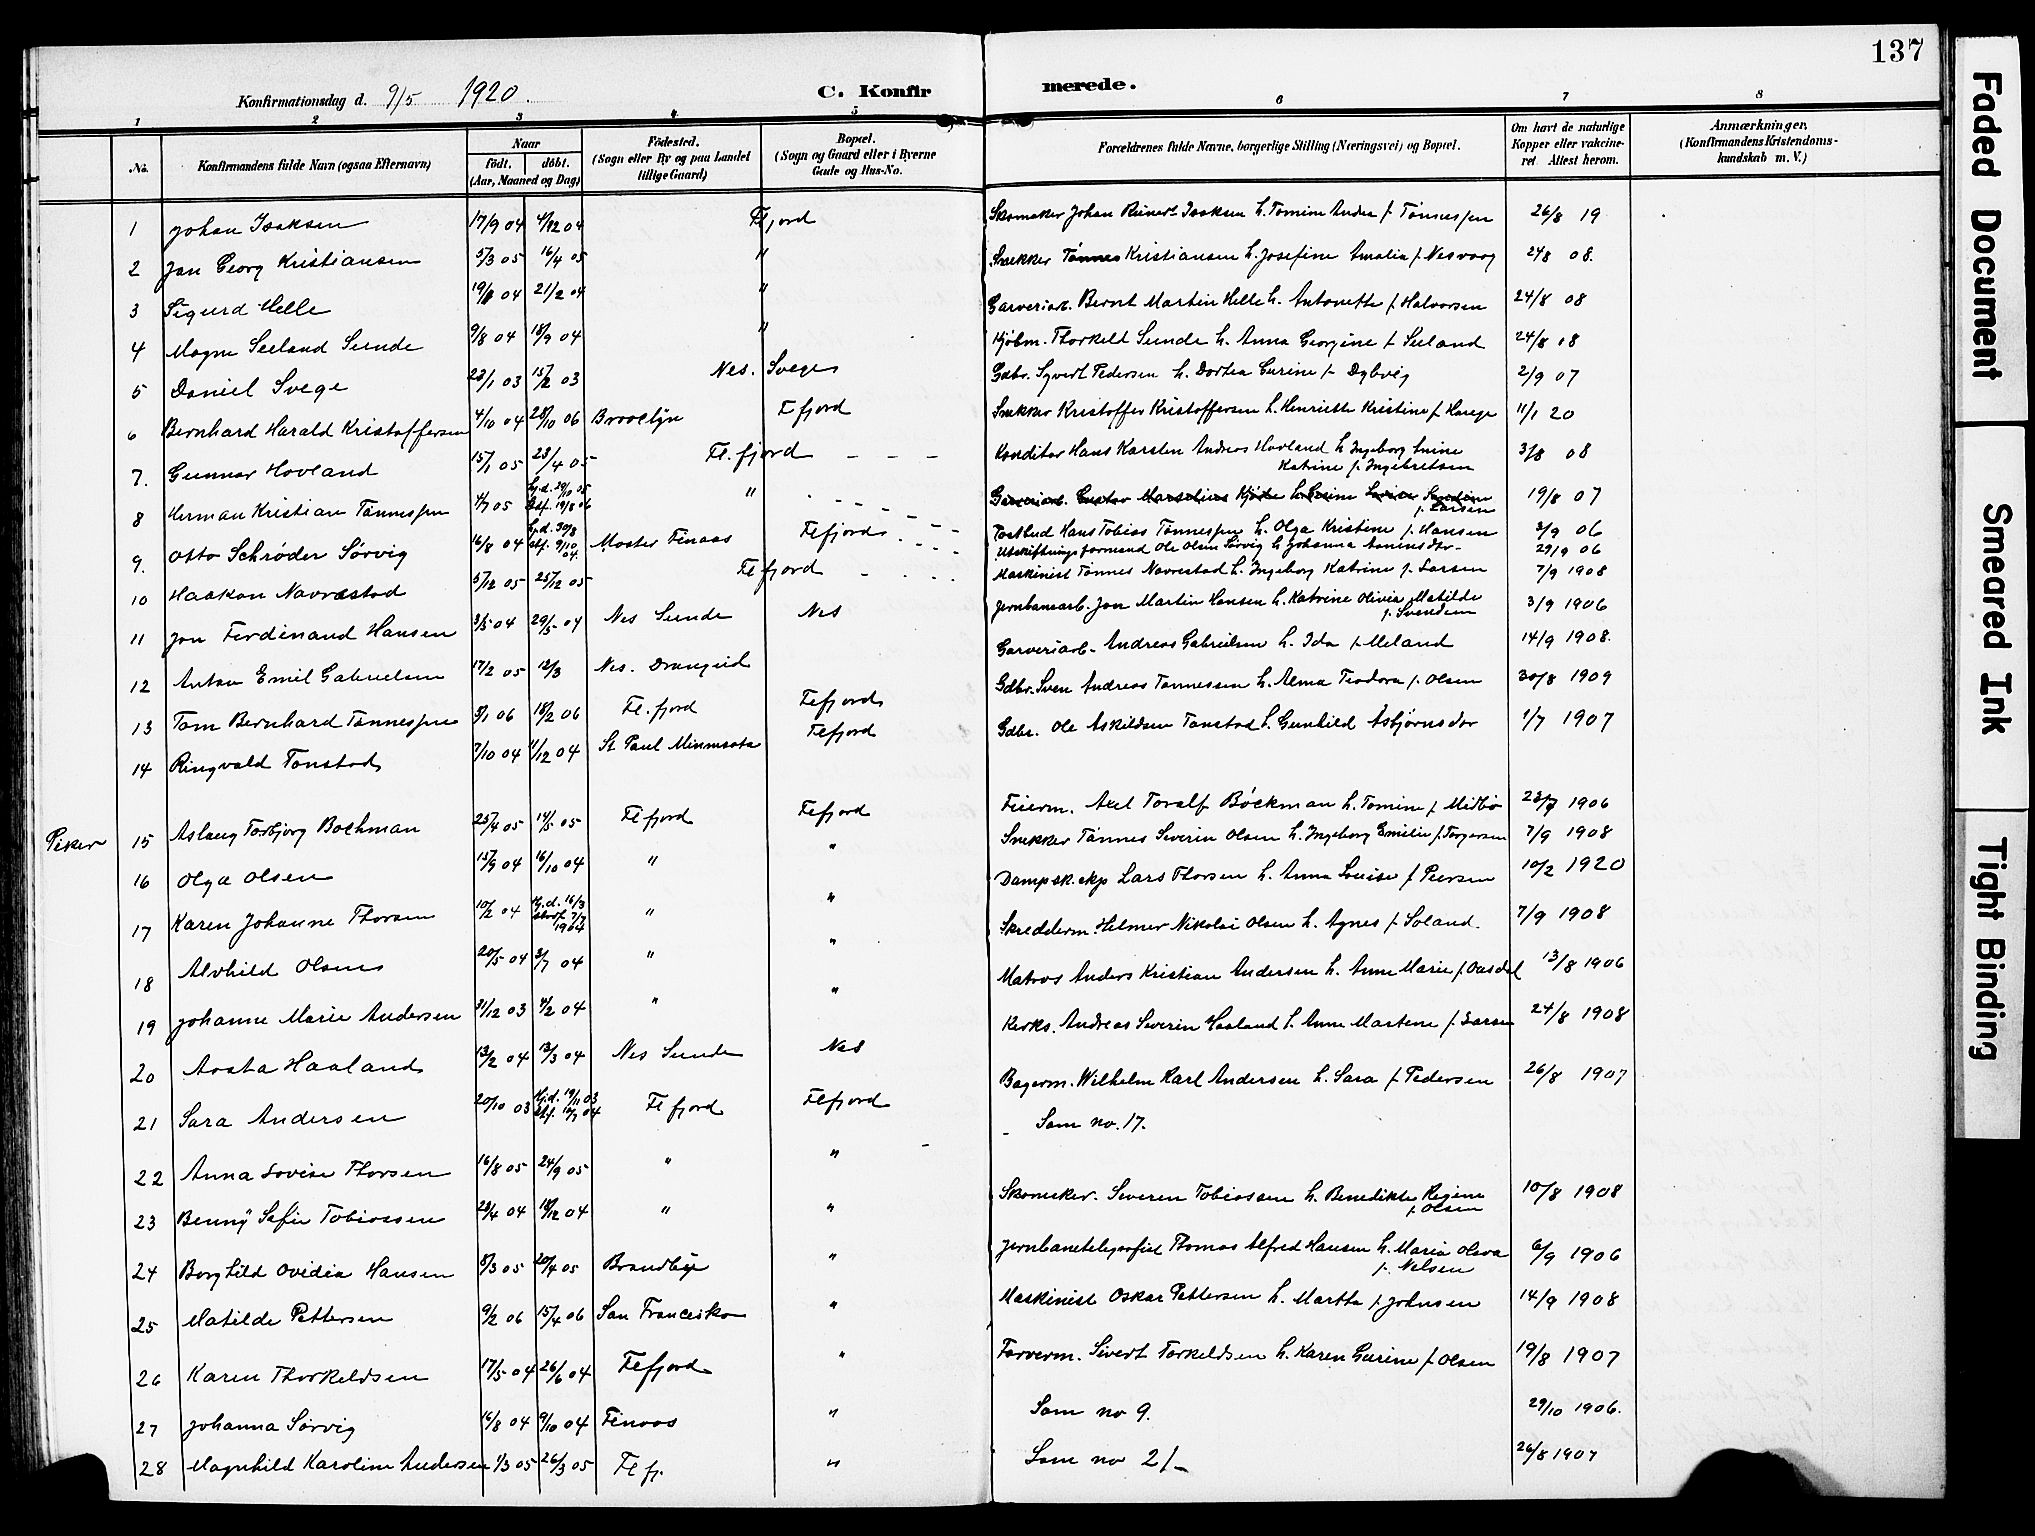 137
Konfirmationsdag d. 9/5 1920. C. Konfirmerede.
1 2 3 4 5 6 7 8
No. Konfirmandens fulde Navn (ogsaa Efternavn) Naar födt. döbt. (Aar, Maaned og Dag) Födested. (Sogn eller By og paa Landet tillige Gaard) Bopæl. (Sogn og Gaard eller i Byerne Gade og Hus-No. Forældrenes fulde Navne, borgerlige Stilling (Næringsvei) og Bopæl. Om havt de naturlige Kopper eller vakcineret. Attest herom. Anmærkninger. (Konfirmandens Kristendomskundskab m. V.)
1 Johan Isaksen 17/9 04 4/12 04 Flfjord Skomaker Johan Isaksen h. Tomine Andrea f. Tønnessen 26/8 19
2 Jan Georg Kristiansen 5/3 05 16/4 05 " Snekker Tønnes Kristiansen h. Josefine Amalia f. Nesvaag 24/8 08.
3 Sigurd Helle 19/1 04 21/2 04 " Garveriarb. Bernt Martin Helle h. Antonette f. Halvorsen 24/8 08
4 Magne Seeland Sunde 9/8 04 18/9 04 " Kjøbm. Thorkeld Sunde h. Anna Georgine f. Seeland 24/8 08
5 Daniel Svege 23/1 03 15/2 03 Nes. Svege Gdbr. Syvert Pedersen h. Dortea Gurine f. Dybvig 2/9 07
6 Bernhard Harald Kristoffersen 4/10 04 28/10 06 Brooclyn Flfjord Snekker Kristoffer Kristoffersen h. Henriette Kristine f. Hauge 11/1 20
7. Gunnar Hovland 15/1 05 23/4 05 Fl.fjord Konditor Hans Karsten Andreas Hovland h. Ingeborg Katrine f. Ingebretsen 3/8 08
8 Herman Kristian Tønnessen 4/7 05 hj.d. 29/10 05 stf. 19/8 06 " Garveriarb. Gustav Marselius f. Larsen 19/8 07
Postbud Hans Tobias Tønnessen h. Olga Kristine f. Hansen 3/9 06
9. Otto Schrøder Sørvig 16/8 04 hj.d. 30/8 stf. 9/10 04. Moster Finaas Flefjord Utskiftningsformand Ole Olsen Sørvig h. Johanna 29/9 06
10 Haakon Navrestad 5/12 05 25/12 05 Flfjord Maskinist Tønnes Navrestad h. Ingeborg Katrine f. Larsen 7/9 1908
11 Jon Ferdinand Hansen 3/5 04 29/5 04 Nes Sunde Nes Jernbanearb. Jon Martin Hansen h. Katrine Olivia Matilde f. Svendsen 3/9 1906
12 Anton Emil Gabrielsen 17/2 05 12/3 Nes. Drangeid Garveriarb. Andreas Gabrielsen h. Ida f. Meland 14/9 1908.
13 Tom Bernhard Tønnessen 3/1 06 18/2 06 Fl.fjord Flefjord Gdbr. Sven Andreas Tønnessen h. Alma Teodora f. Olsen 30/8 1909
14 Ringvald Tonstad 7/10 04 4/12 04 St Paul Minnesota Flefjord Gdbr. Ole Askildsen Tonstad h. Gunhild Asbjørnsdtr 1/7 1907
Piker
15 Aslaug Torbjørg Bochman 25/4 05 14/5 05 Flefjord Flefjord Feierm. Axel Toralf Bøckman h. Tomine f. Midbø 23/9 1906
16 Olga Olsen 15/9 04 16/10 04 " " Snekker Tønnes Severin Olsen h. Ingeborg Emilie f. Torgersen 7/9 1908
17 Karen Johanne Thorsen 10/2 04 hj.d. 16/3 stf. 7/7 1904 " " Dampsk.exp Lars Thorsen h. Anna Louise f. Peersen 10/2 1920
18 Alvhild Olsen 20/5 04 3/7 04 " " Skrædderm. Helmer Nikolai Olsen h. Agnes f. Soland. 7/9 1908
19 Johanne Marie Andersen 31/12 03 4/2 04 " " Matros Anders Kristian Andersen h. Anne Marie f. Oasdal 13/8 1906
20 Aasta Haaland 13/2 04 13/3 04 Nes Sunde Nes Kirks. Andreas Severin Haaland h. Anne Martene f. Larsen 24/8 1908
21 Sara Andersen 20/10 03 hj.d. 19/11 03 stf. 17/7 04 Flfjord Flefjord Bagerm. Wilhelm Karl Andersen h. Sara f. Pedersen 26/8 1907
22 Anna Lovise Thorsen 16/8 05 24/9 05 " " Som no. 17.
23 Benny Sofie Tobiassen 23/4 04 18/12 04 " " Skomeker. Severen Tobiassen h. Benedikte Regine f. Olsen 10/8 1908
24 Borghild Ovidia Hansen 8/3 05 20/4 05 Brandbye " Jernbanetelegrafist Thomas Alfred Hansen h. Maria Olava f. Nelsen 6/9 1906
25 Matilde Pettersen 9/2 06 15/4 06 San Francesko " Maskinist Oskar Pettersen h. Martha f. Johnsen 14/9 1908
26 Karen Thorkeldsen 17/5 04 26/6 04 Flefjord " Farverm. Sivert Torkeldsen h. Karen Gurine f. Olsen 19/8 1907
27 Johanna Sørvig 16/8 04 9/10 04 Finaas " Som no 9. 29/10 1906.
28 Magnhild Karoline Andersen 1/3 05 26/3 05 Flfj. " Som no 21 26/8 1907
Faded Document
Smeared Ink
Tight Binding